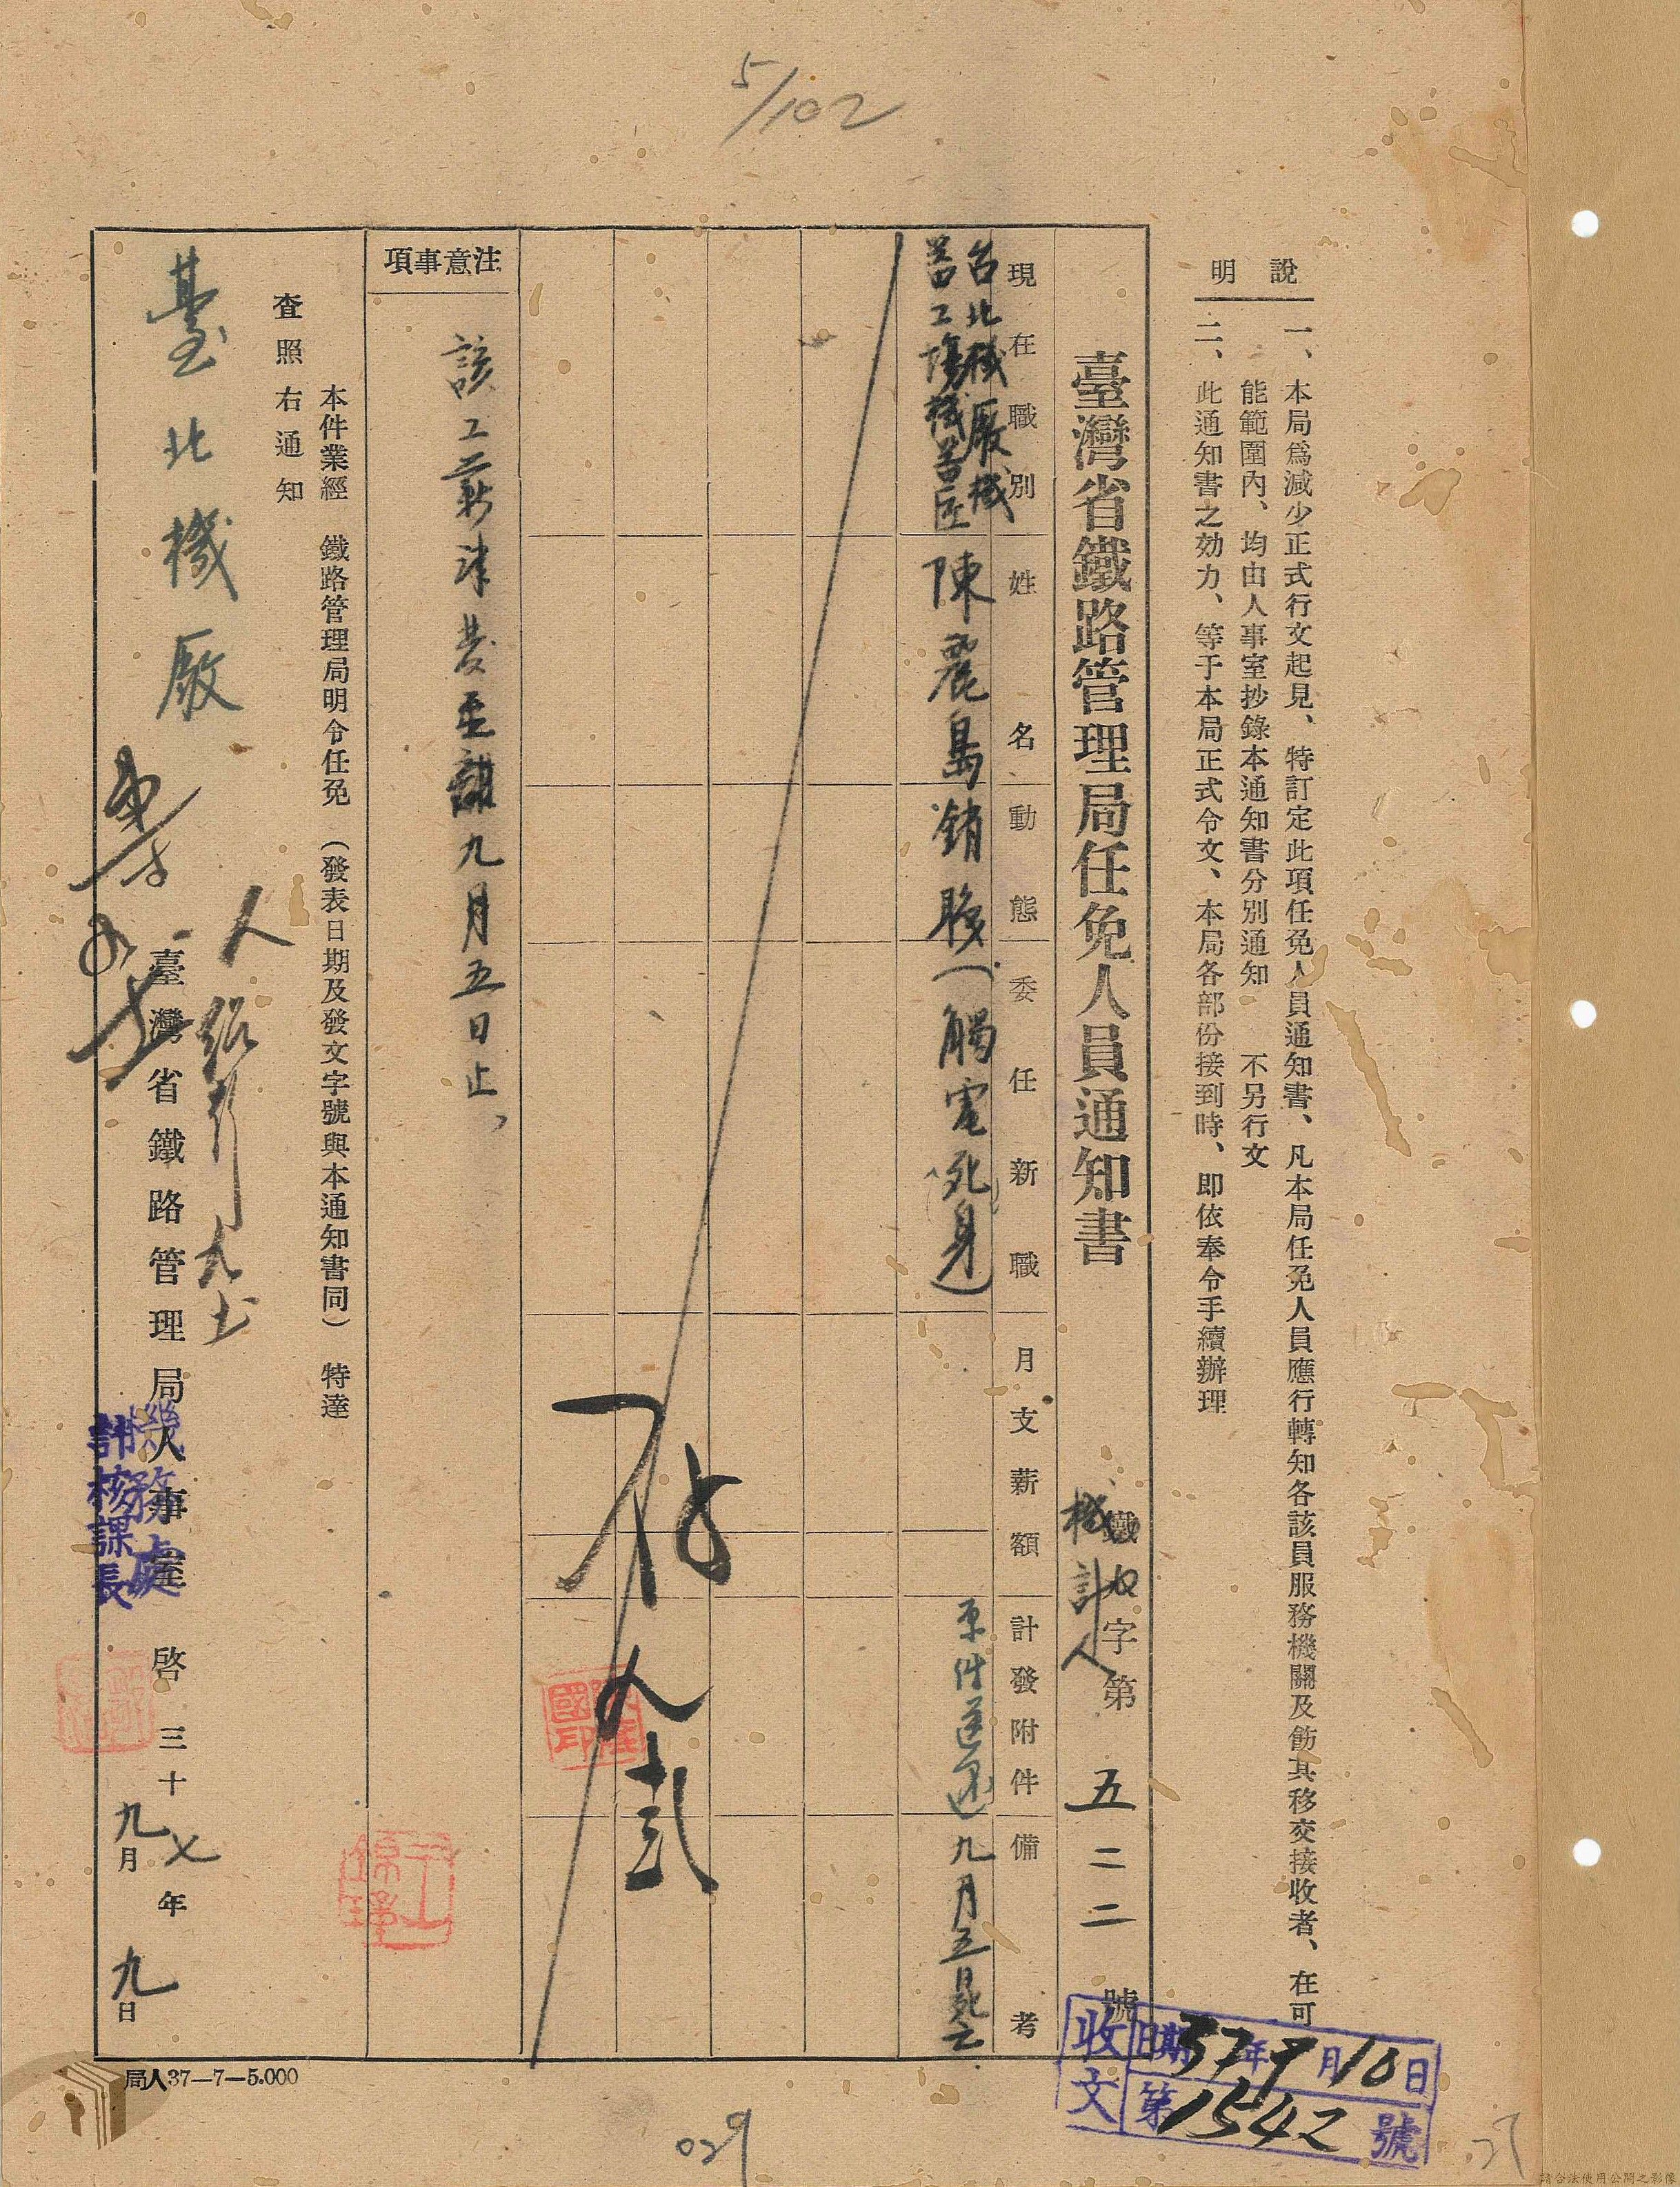 5/102
說明
一、本局爲減少正式行文起見、特訂定此項任免人員通知書、凡本局任免人員應行轉知各該員服務機關及飭其移交接收者、在可
能範圍內、均由人事室抄錄本通知書分別通知　不另行文
二、此通知書之効力、等于本局正式令文、本局各部份接到時、即依奉令手續辦理
臺灣省鐵路管理局任免人員通知書
機計人字第五二二號
收文 日期37年9月10日
第1542號
現在職別
姓名
動態
委任新職
月支薪額
計發附件
備考
台北機廠機
器工場機器匠
陳麗島
銷務(觸電死身)
原件送還
九月五日死亡
注意事項
該工薪津發至九月五日止、
本件業經 鐵路管理局明令任免 (發表日期及發文字號與本通知書同) 特達
查照右通知
臺北機廠
臺灣省鐵路管理局人事室 啓
機務處
計核課長
三十七年九月九日
局人37—7—5.000
029
請合法使用公開之影像